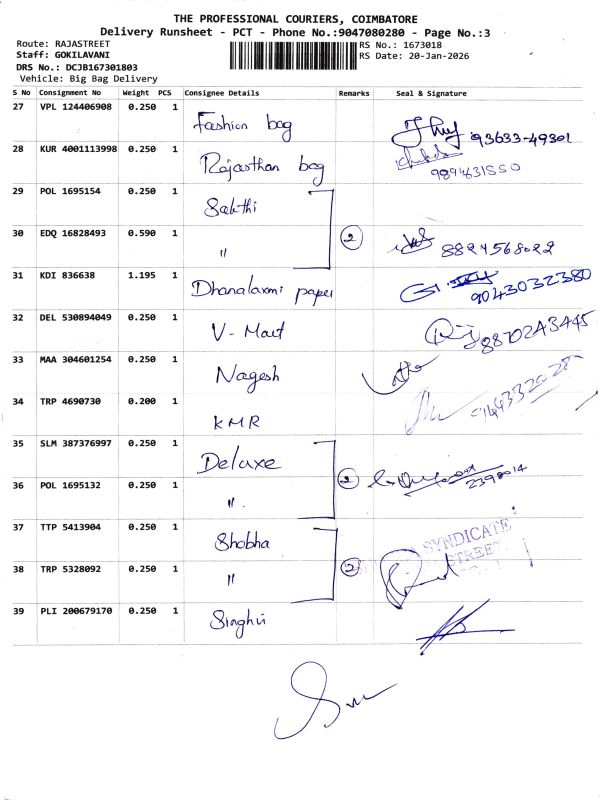 THE PROFESSIONAL COURIERS, COIMBATORE
Delivery Runsheet - PCT - Phone No.:9047080280 - Page No.:3
Route: RAJASTREET
Staff: GOKILAVANI
DRS No.: DCJB167301803
Vehicle: Big Bag Delivery
RS No.: 1673018
RS Date: 20-Jan-2026
S No Consignment No Weight PCS Consignee Details Remarks Seal & Signature
27 VPL 124406908 0.250 1 Fashion bag 93633-49301
28 KUR 4001113998 0.250 1 Rajasthan bag 9894631550
29 POL 1695154 0.250 1 Sakthi
30 EDQ 16828493 0.590 1 〃 2 8824568022
31 KDI 836638 1.195 1 Dhanalaxmi paper 9043032380
32 DEL 530894049 0.250 1 V-Mart 8870243445
33 MAA 304601254 0.250 1 Nagesh
34 TRP 4690730 0.200 1 KMR
35 SLM 387376997 0.250 1 Deluxe
36 POL 1695132 0.250 1 〃 2 2398014
37 TTP 5413904 0.250 1 Shobha SYNDICATE
STREET
38 TRP 5328092 0.250 1 〃 2
39 PLI 200679170 0.250 1 Singhvi